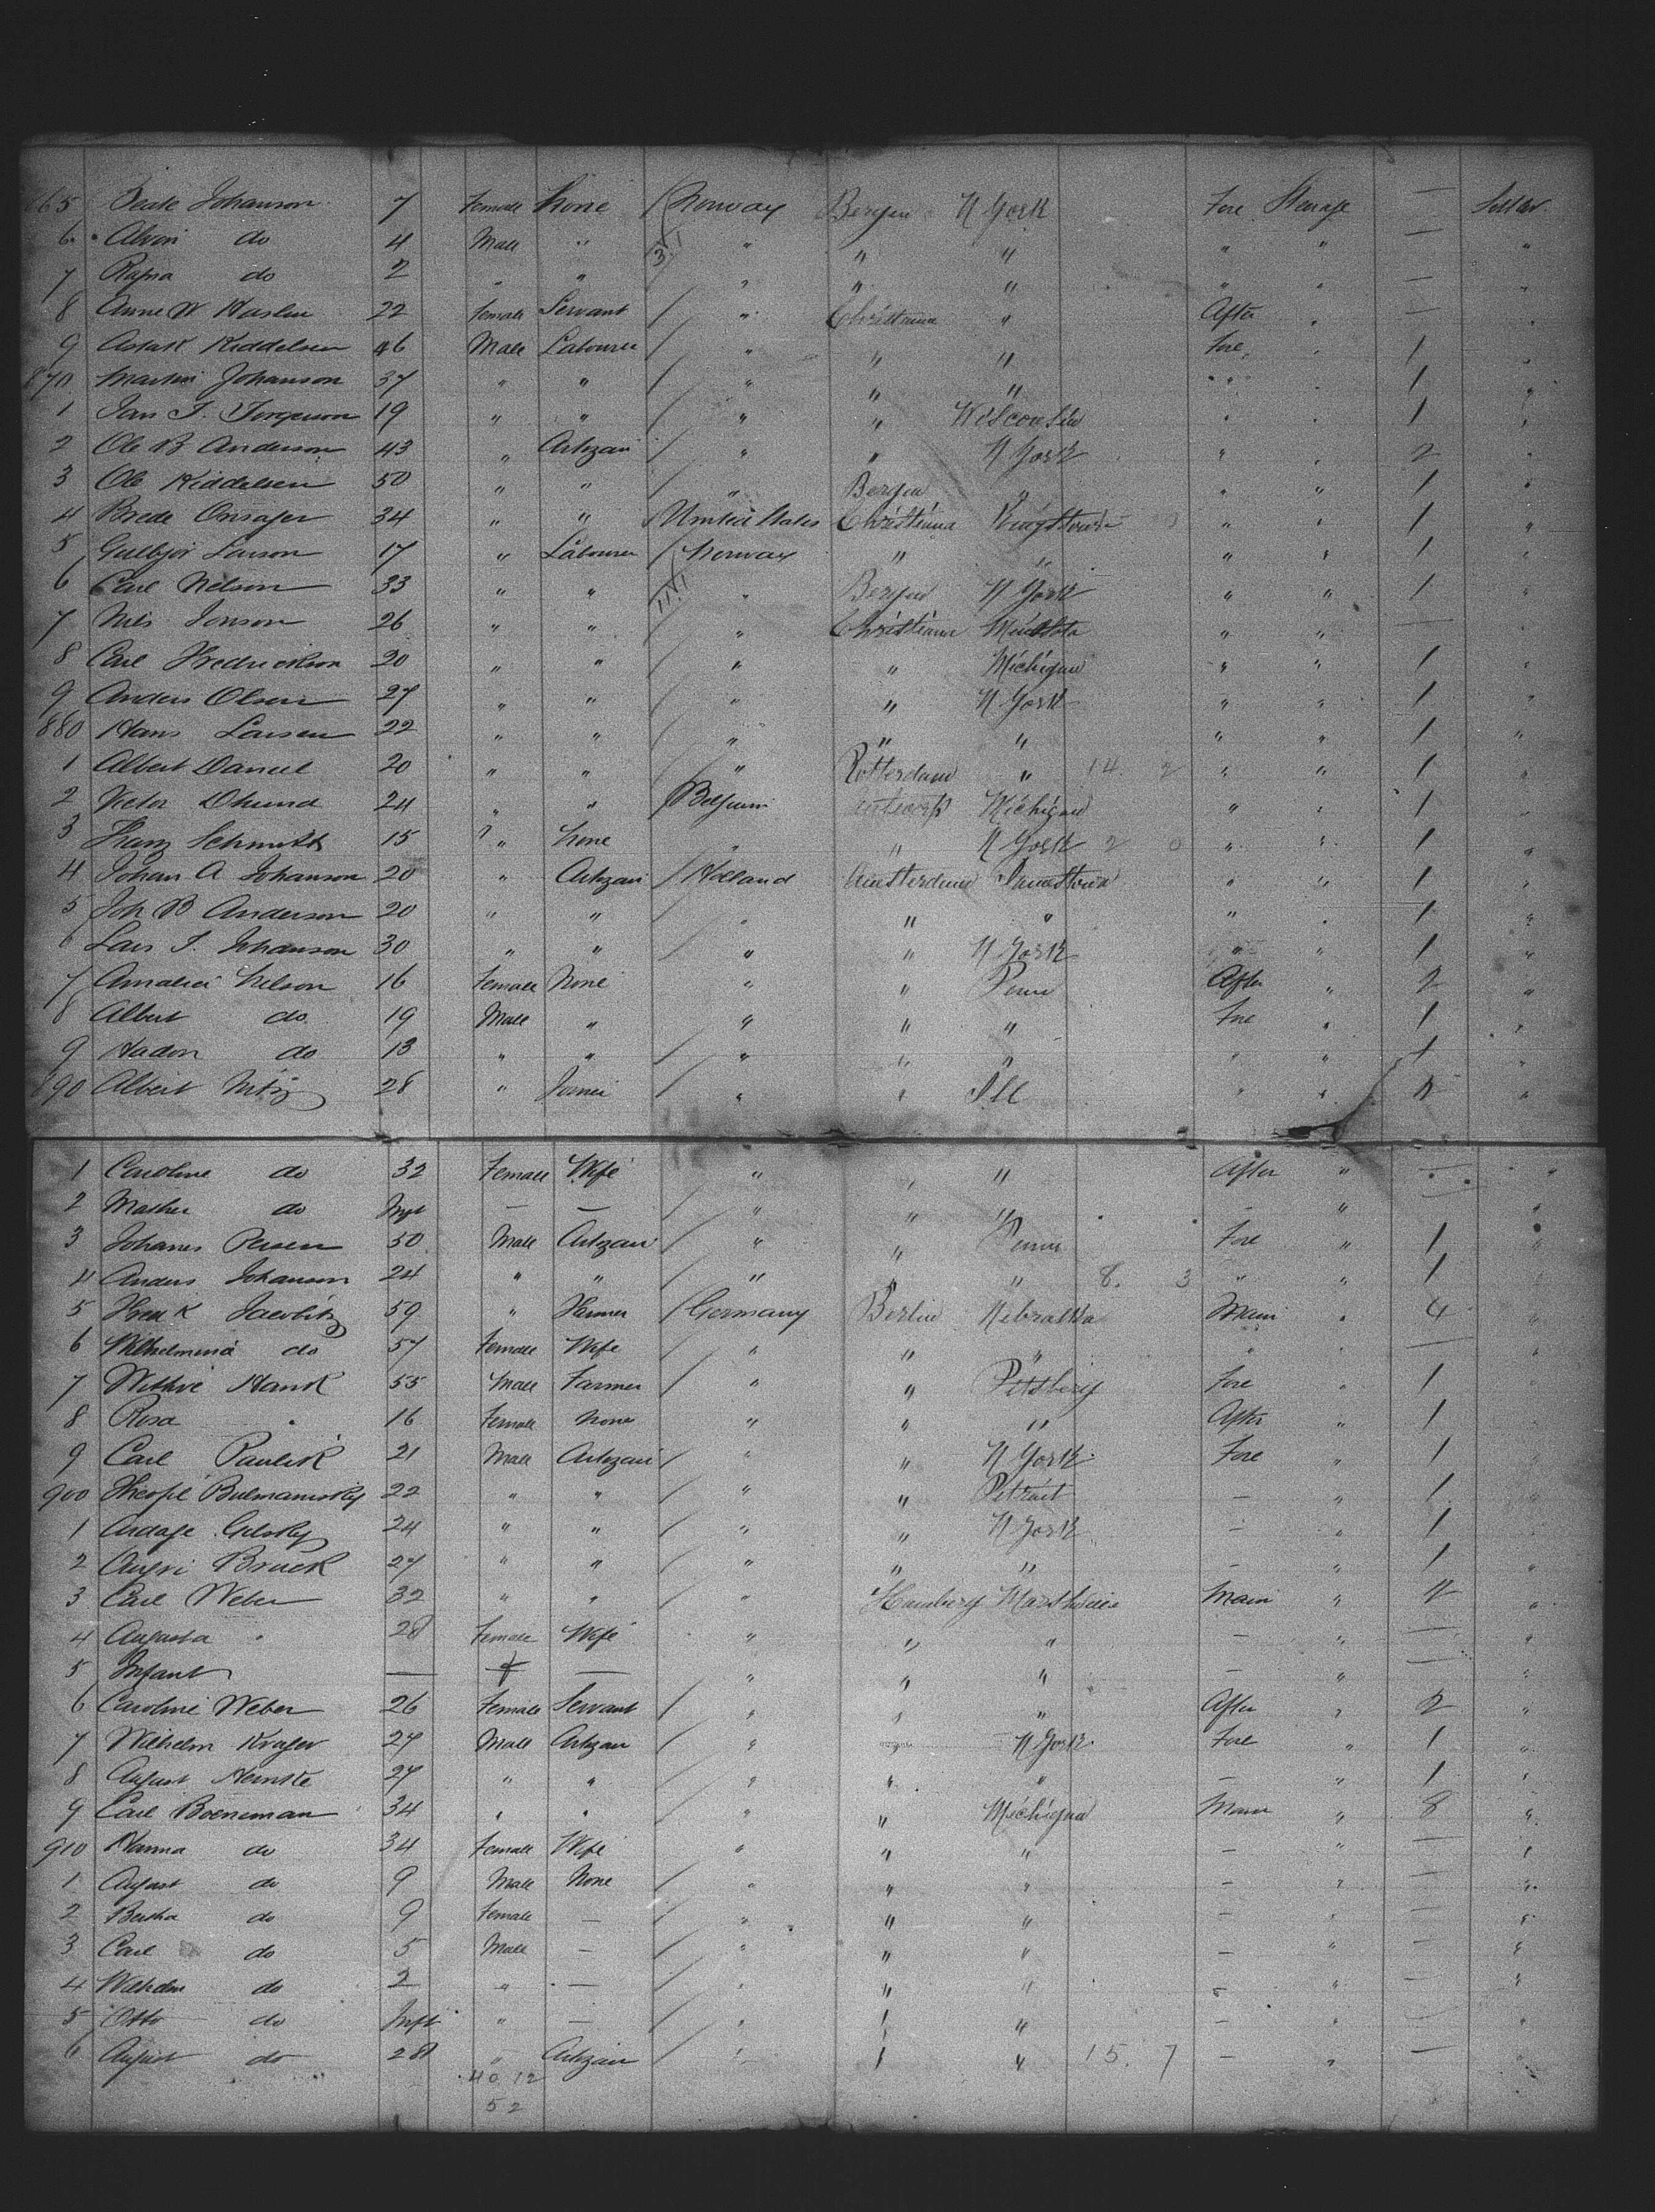 865 Beate Johanson 7 Female None / Norway Bergen N York Fore Steerage —
6 Alvin do 4 Male " " " " " " — "
7 Ragna do 2 " " " " " " " — "
8 Anne W Haslen 22 Female Servant / " Christiana " After " — "
9 Aslak Kiddelsen 46 Male Labourer / " " " Fore " 1 "
870 Martin Johanson 37 " " / " " " " " 1 "
1 Jans J. Jorgenson 19 " " / " " Wisconsin " " 1 "
2 Ole B Anderson 43 " Artizan / " " N York " " 2 "
3 Ole Kiddelsen 50 " " / " Bergen " " " 1 "
4 Brede Onsager 34 " " / United States Christiana Youngstown " " 1 "
5 Gulbjor Larson 17 " Labourer / Norway " " " " 1 "
6 Carl Nelson 33 " " " Bergen N York " " 1 "
7 Nils Jonson 26 " " / " Christiana " " — "
8 Carl Fredrickson 20 " " / " " Michigan " " 1 "
9 Anders Olsen 27 " " / " " N York " " 1 "
880 Hans Larsen 22 " " / " " " " " 1 "
1 Albert Daniel 20 " " / " Rotterdam " 14 2 " " 1 "
2 Victor 24 " " / Belgium Antwerp Michigan " " 1 "
3 Franz Schmitt 15 " None " " N York 2 0 " " 1 "
4 Johan A Johanson 20 " Artizan / Holland Amsterdam Jamestown " " 1 "
5 Joh B Anderson 20 " " / " " " " " 1 "
6 Lars J. Johanson 30 " " / " " N York " " 1 "
7 Amalia Nelson 16 Female None " " Penn After " 2 "
8 Albert do 19 Male " / " " " Fore " 1 "
9 do 13 " " / " " " " " 1 "
890 Albert 28 " / " " Ill " " "
1 Caroline do 32 Female Wife " " " After " — "
2 do Inft — — / " " " — " — "
3 Johans Persen 50 Male Artizan / " " Penn Fore " 1 "
4 Anders Johanson 24 " " / " " " 8. 3 " " 1 "
5 Fredk 59 " Farmer / Germany Berlin Nebraska Main " 4 "
6 Wilhelmina do 57 Female Wife / " " " " " — "
7 55 Male Farmer / " " Pittsburg Fore " 1 "
8 Rosa " 16 Female None " " " After " 1 "
9 Carl Paulik 21 Male Artizan / " " N York Fore " 1 "
900 22 " " / " " Detroit — " 1 "
1 24 " " / " " N York — " 1 "
2 Bruck 27 " " / " " " — " 1 "
3 Carl Weber 32 " " / " Hamburg Main " "
4 Augusta " 28 Female Wife " " " — " — "
5 Infant — — " " " — " — "
6 Caroline Weber 26 Female Servant / " " " After " 2 "
7 Wilhelm Kruger 27 Male Artizan / " " N York Fore " 1 "
8 August 27 " " / " " " — " 1 "
9 Carl Boeneman 34 " " / " " Michigan Main " 8 "
910 Hanna do 34 Female Wife " " " — " — "
1 August do 9 Male None / " " " — " — "
2 Bertha do 9 Female — / " " " — " — "
3 Carl do 5 Male — / " " " — " — "
4 Wilhelm do 2 " — / " " " " — "
5 Otto do Inft " — / " " " — " — "
6 August do 28 " Artizan / " " " 15. 7 — " — "
40 12
52